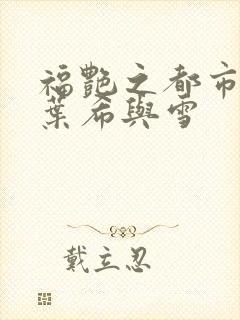 福艷之都市
葉希與雪
戴立忍